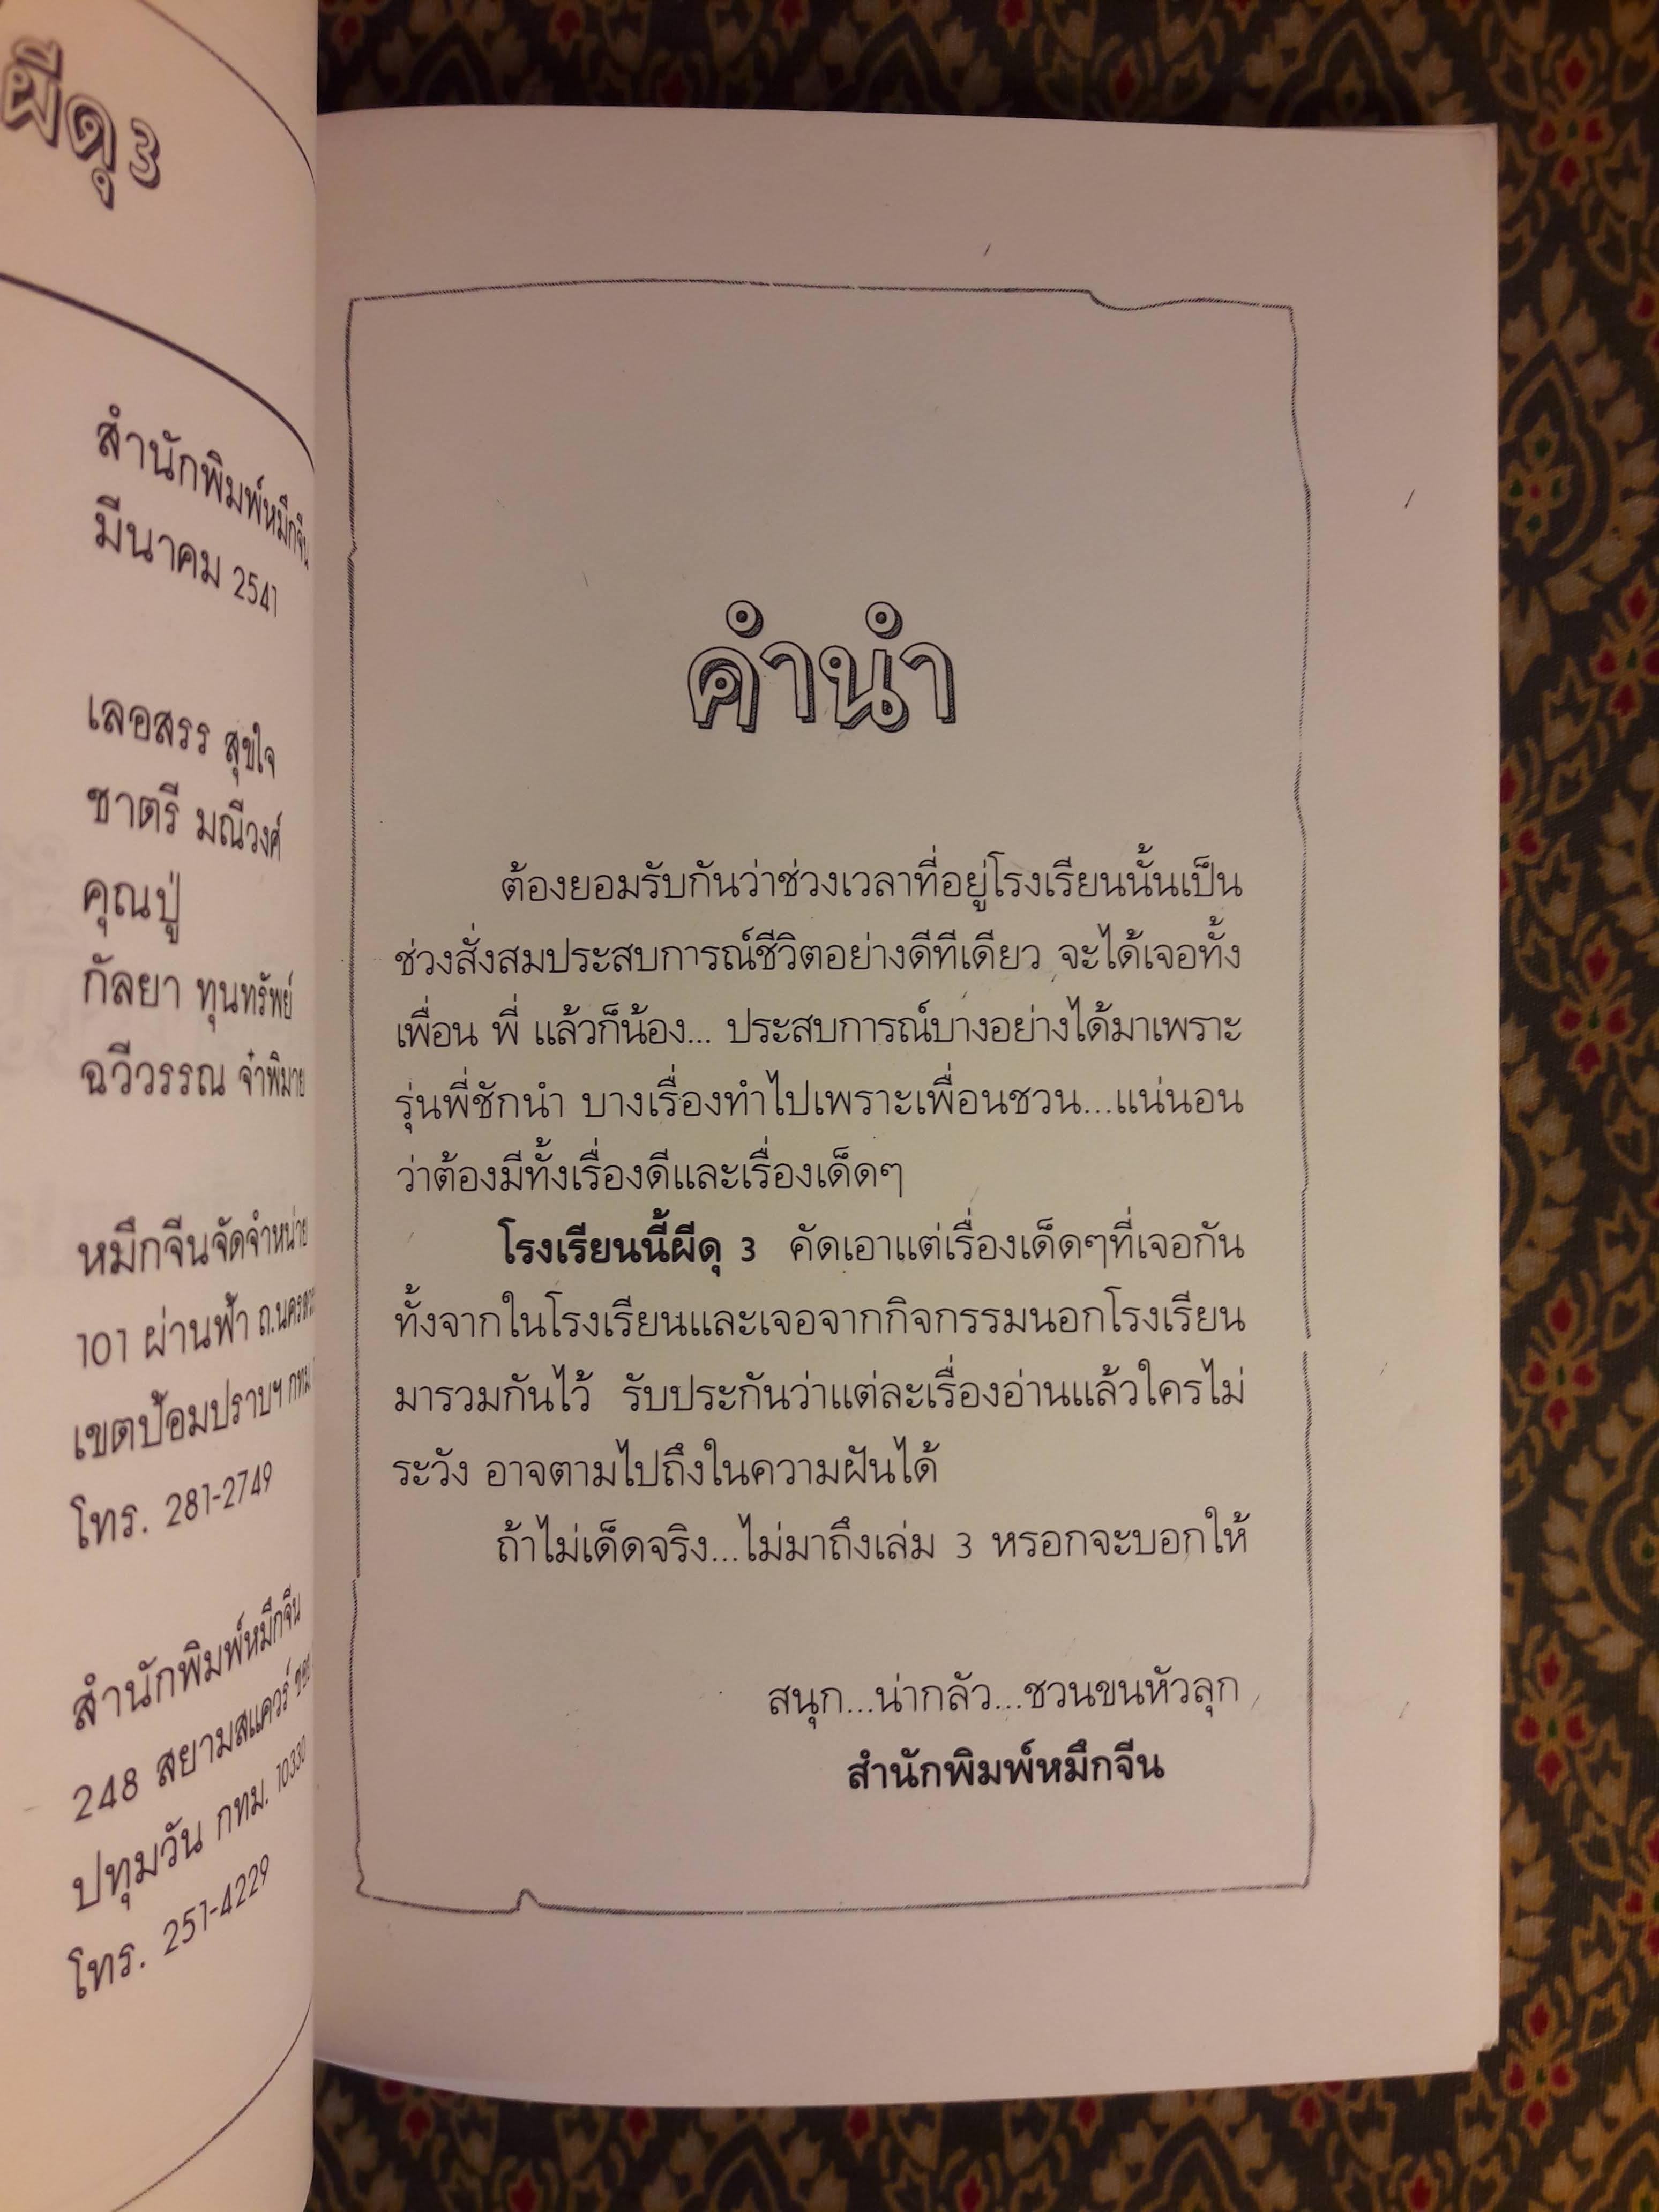 ผีดุ 3
สำนักพิมพ์หมึกจีน
มีนาคม 2541
เลอสรร สุขใจ
ชาตรี มณีวงศ์
คุณปู่
กัลยา ทุนทรัพย์
ฉวีวรรณ จำพิมาย
หมึกจีนจัดจำหน่าย
101 ผ่านฟ้า ถ.นคร
เขตป้อมปราบฯ กทม
โทร. 281-2749
สำนักพิมพ์หมึกจีน
248 สยามสแควร์ ซอย
ปทุมวัน กทม. 10330
โทร. 251-4229
คำนำ
ต้องยอมรับกันว่าช่วงเวลาที่อยู่โรงเรียนนั้นเป็น
ช่วงสั่งสมประสบการณ์ชีวิตอย่างดีทีเดียว จะได้เจอทั้ง
เพื่อน พี่ แล้วก็น้อง... ประสบการณ์บางอย่างได้มาเพราะ
รุ่นพี่ชักนำ บางเรื่องทำไปเพราะเพื่อนชวน...แน่นอน
ว่าต้องมีทั้งเรื่องดีและเรื่องเด็ดๆ
โรงเรียนนี้ผีดุ 3 คัดเอาแต่เรื่องเด็ดๆที่เจอกัน
ทั้งจากในโรงเรียนและเจอจากกิจกรรมนอกโรงเรียน
มารวมกันไว้ รับประกันว่าแต่ละเรื่องอ่านแล้วใครไม่
ระวัง อาจตามไปถึงในความฝันได้
ถ้าไม่เด็ดจริง...ไม่มาถึงเล่ม 3 หรอกจะบอกให้
สนุก...น่ากลัว...ชวนขนหัวลุก
สำนักพิมพ์หมึกจีน